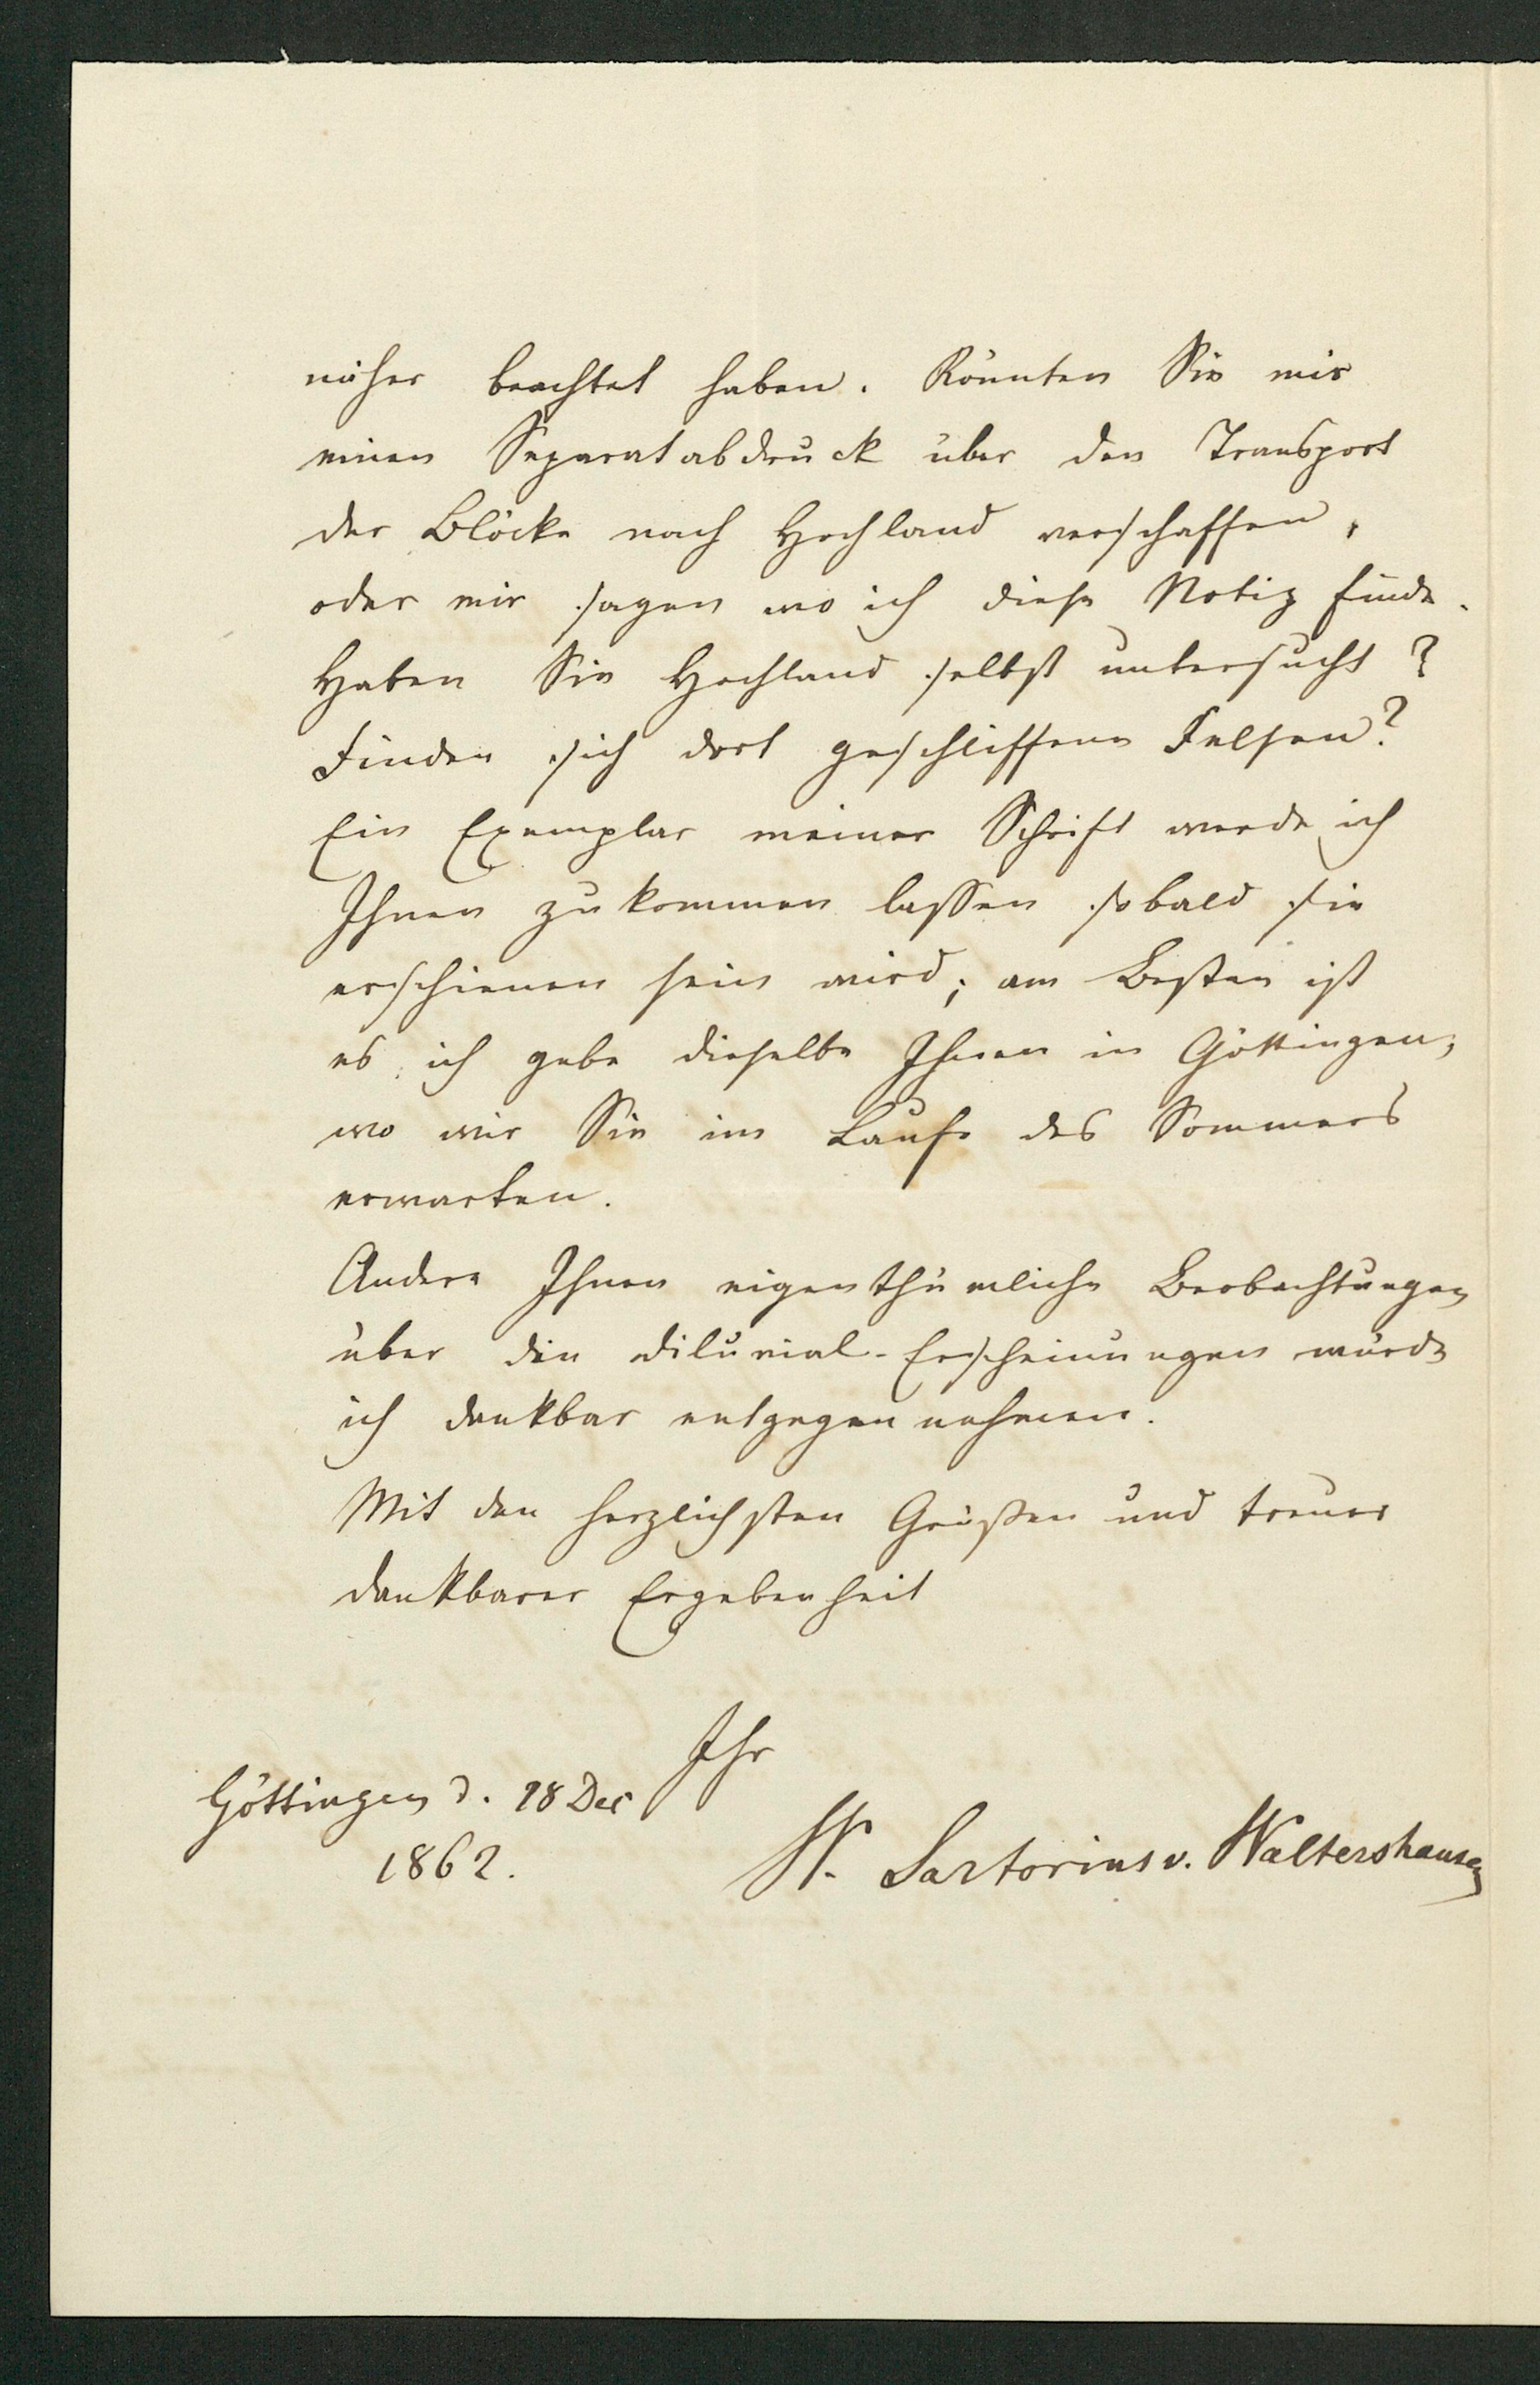 näher beachtet haben. Könnten Sie mir
einen Separatabdruck über den Transport
der Blöcke nach Hochland verschaffen,
oder mir sagen wo ich diese Notiz finde.
Haben Sie Hochland selbst untersucht?
Finden sich dort geschliffene Felsen?
Ein Exemplar meiner Schrift werde ich
Ihnen zukommen lassen sobald sie
erschienen sein wird; am Besten ist
es ich gebe dieselbe Ihnen in Göttingen,
wo wir Sie im Laufe des Sommers
erwarten.
Andere Ihnen eigenthümliche Beobachtungen
über die Diluvial-Erscheinungen würde
ich dankbar entgegennehmen.
Mit den herzlichsten Grüßen und treuer
dankbarer Ergebenheit
Ihr
Göttingen d. 18 Dec
1862.
W. Sartorius v. Waltershausen